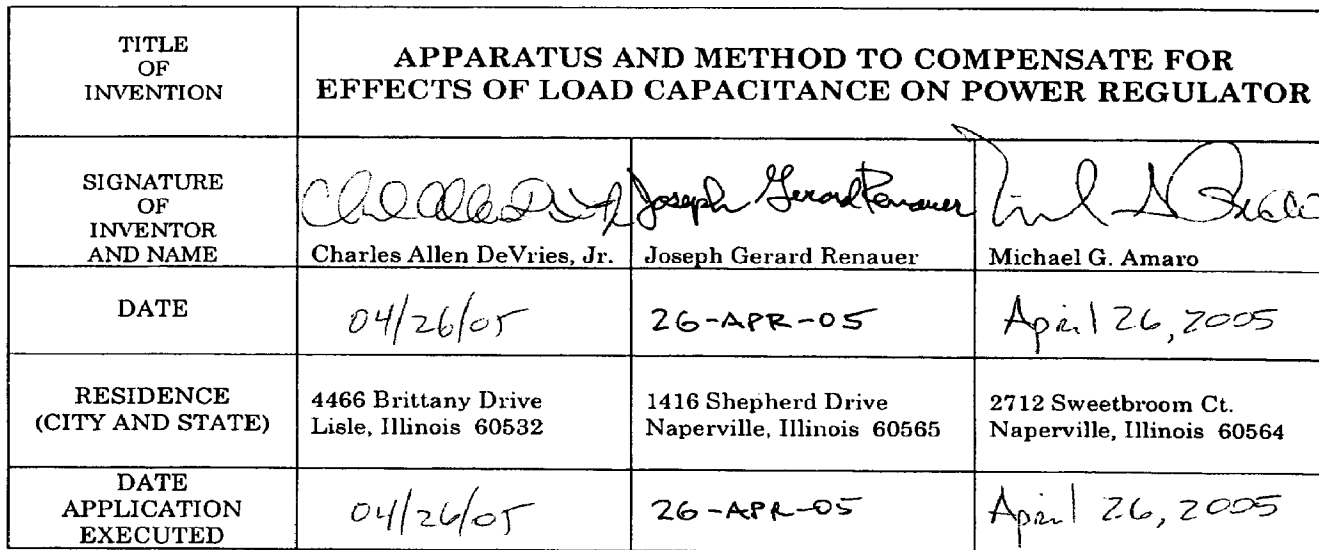 TITLE
OF
INVENTION
APPARATUS AND METHOD TO COMPENSATE FOR
EFFECTS OF LOAD CAPACITANCE ON POWER REGULATOR
SIGNATURE
OF
INVENTOR
AND NAME
Joseph Gerard Renauer
Charles Allen DeVries, Jr.
Joseph Gerard Renauer
Michael G. Amaro
DATE
04/26/05
26-APR-05
April 26, 2005
RESIDENCE
(CITY AND STATE)
4466 Brittany Drive
Lisle, Illinois 60532
1416 Shepherd Drive
Naperville, Illinois 60565
2712 Sweetbroom Ct.
Naperville, Illinois 60564
DATE
APPLICATION
EXECUTED
04/26/05
26-APR-05
April 26, 2005